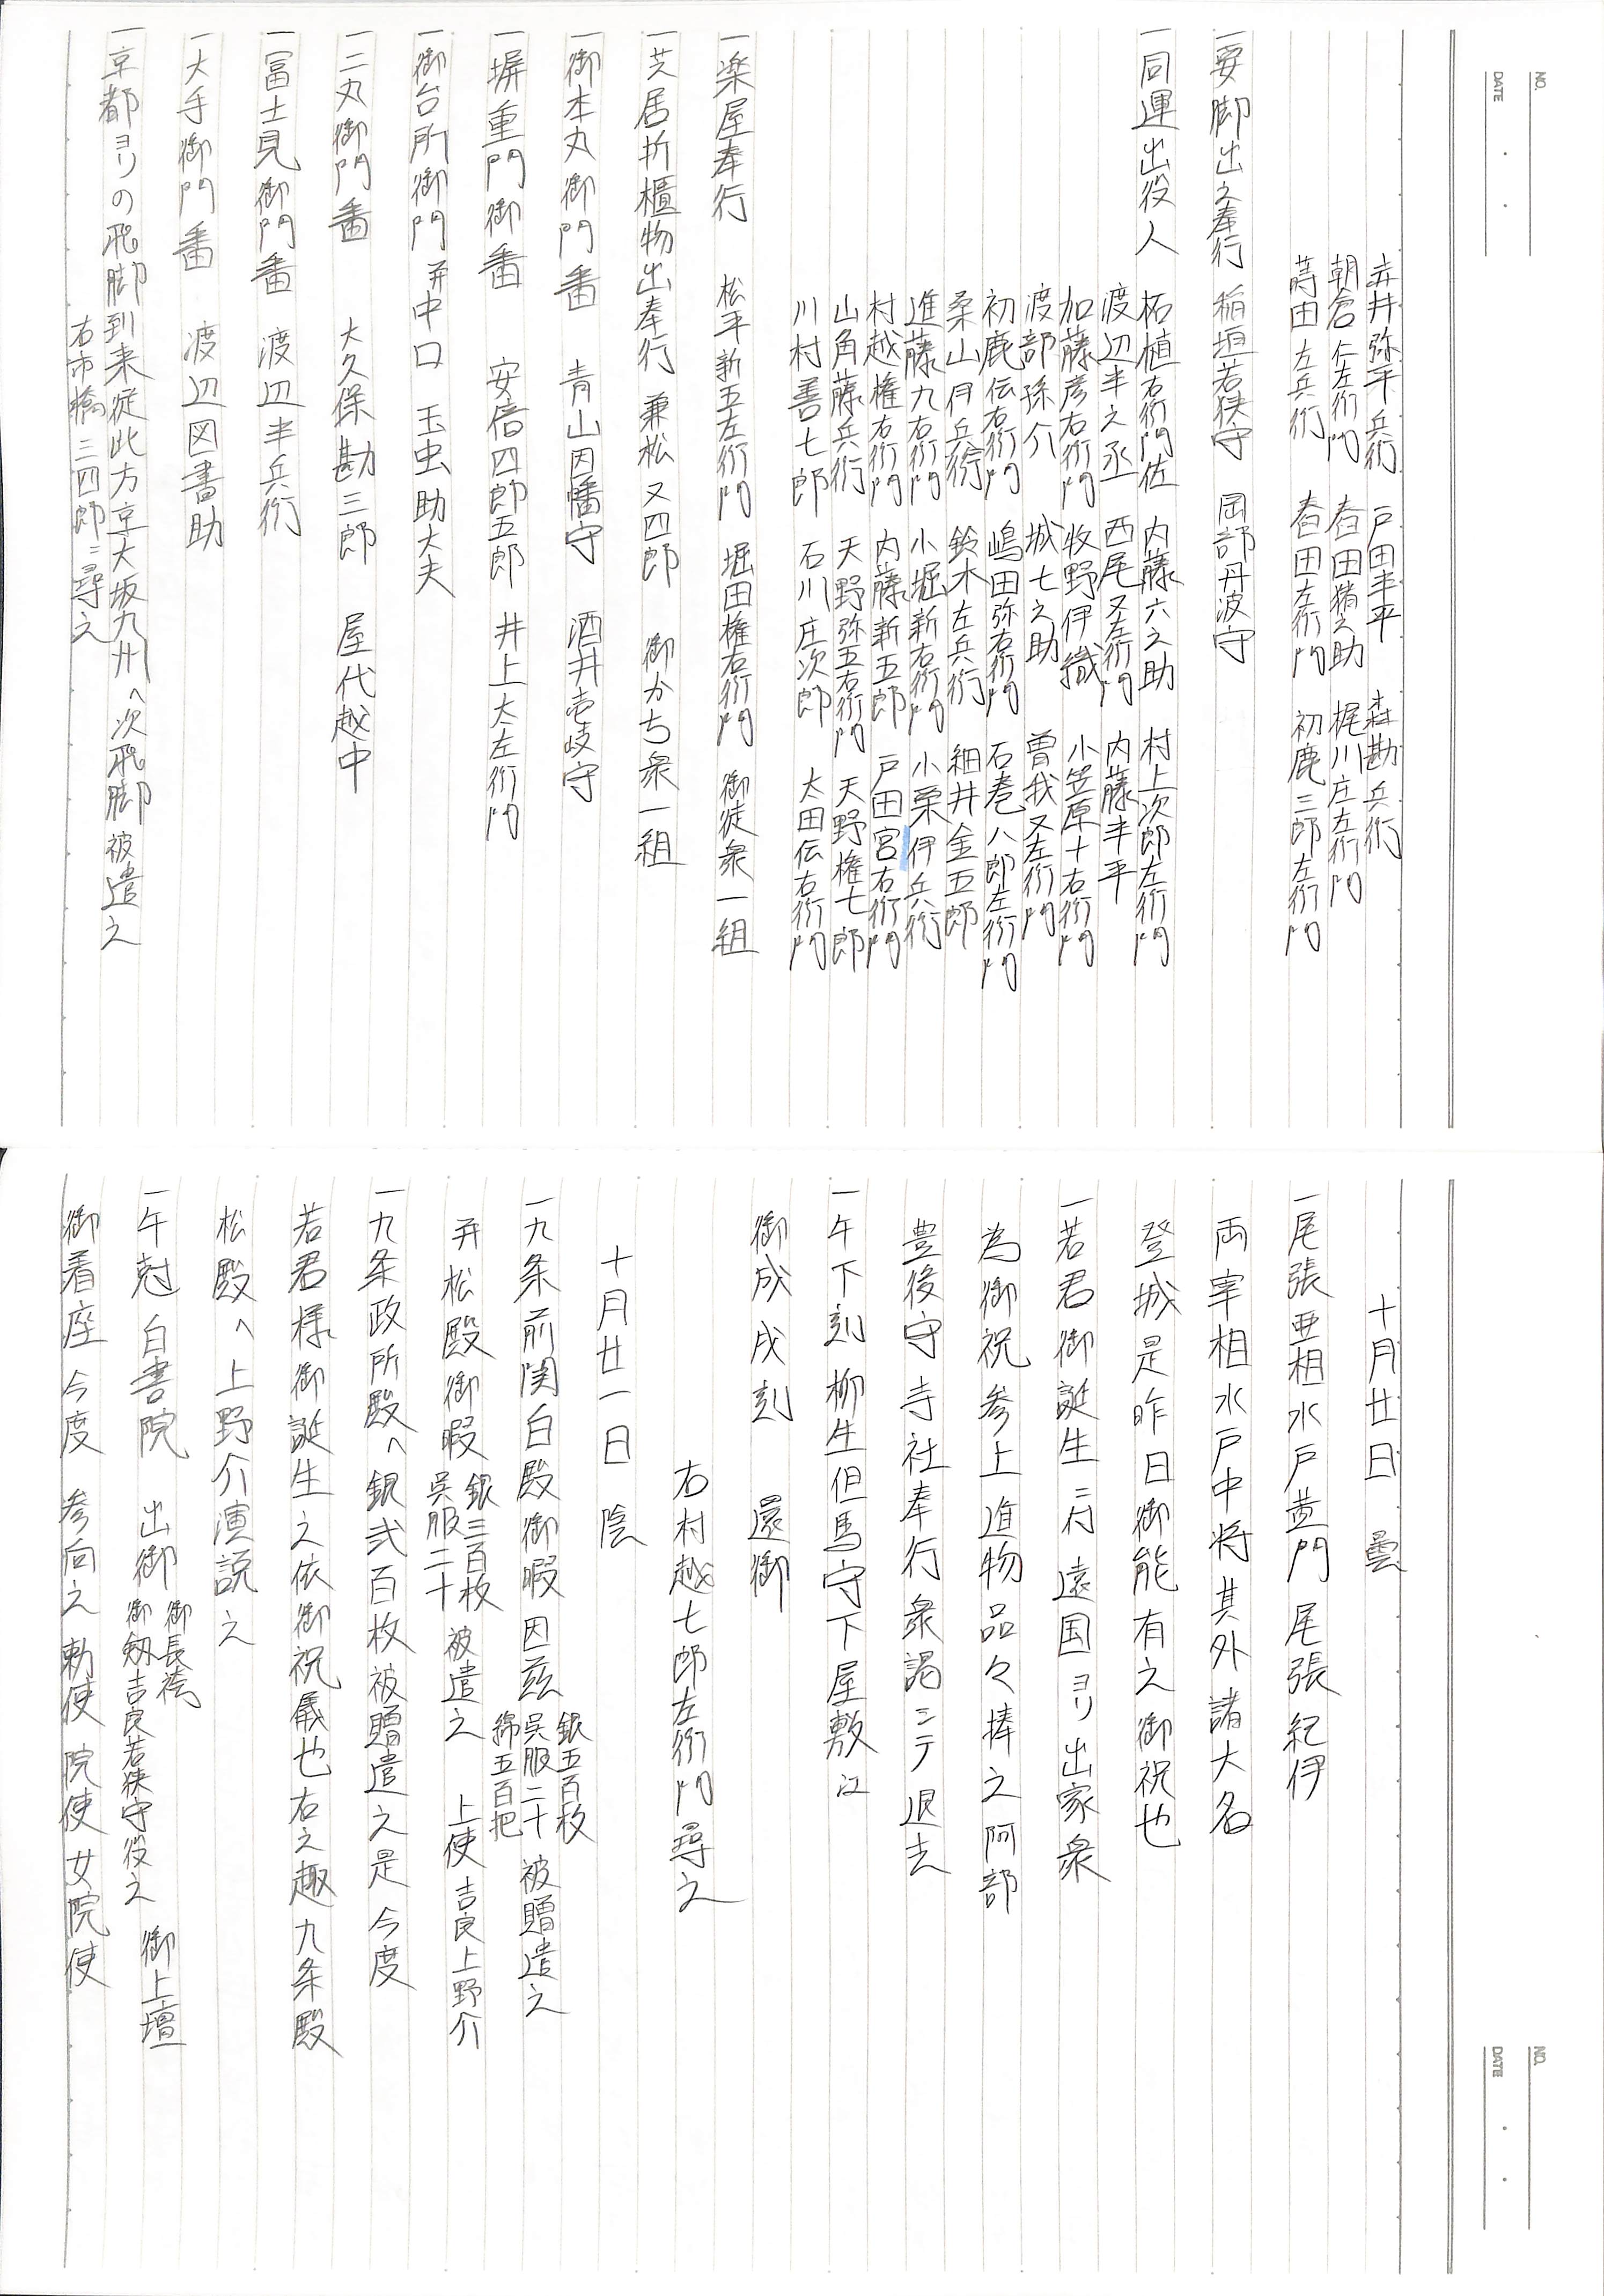 NO.
DATE
赤井弥平兵衛 戸田半平 森勘兵衛
朝倉仁左衛門 春田猪之助 梶川庄左衛門
蒔田左兵衛 春田左衛門 初鹿三郎左衛門
一要脚出之奉行 稲垣若狭守 岡部丹波守
一同運出役人 柘植右衛門佐 内藤六之助 村上次郎左衛門
渡辺半之丞 西尾又左衛門 内藤半平
加藤彦右衛門 牧野伊織 小笠原十右衛門
渡部孫介 城七之助 曽我又左衛門
初鹿伝右衛門 嶋田弥右衛門 石巻八郎左衛門
桑山伊兵衛 鈴木左兵衛 細井金五郎
進藤九右衛門 小堀新右衛門 小栗伊兵衛
村越権右衛門 内藤新五郎 戸田宮右衛門
山角藤兵衛 天野弥五右衛門 天野権七郎
川村善七郎 石川庄次郎 太田伝右衛門
一楽屋奉行 松平新五左衛門 堀田権右衛門 御徒衆一組
一芝居折櫃物出奉行 兼松又四郎 御かち衆一組
一御本丸御門番 青山因幡守 酒井壱岐守
一塀重門御番 安倍四郎五郎 井上太左衛門
一御台所御門并中口 玉虫助大夫
一二丸御門番 大久保勘三郎 屋代越中
一冨士見御門番 渡辺半兵衛
一大手御門番 渡辺図書助
一京都ヨリの飛脚到来従此方京大坂九州へ次飛脚被遣之
右市橋三四郎ニ尋之
NO.
DATE
十月廿日 曇
一尾張亜相水戸黄門 尾張紀伊
両宰相水戸中将其外諸大名
登城是昨日御能有之御祝也
一若君御誕生ニ付遠国ヨリ出家衆
為御祝参上進物品々捧之阿部
豊後守寺社奉行衆謁シテ退去
一午下刻柳生但馬守下屋敷江
御成戌刻 還御
右村越七郎左衛門尋之
十月廿一日 陰
一九条前関白殿御暇因茲 銀五百枚 呉服二十 綿五百把 被贈遣之
并松殿御暇 銀三百枚 呉服二十 被遣之 上使吉良上野介
一九条政所殿へ銀弐百枚被贈遣之是今度
若君様御誕生之依御祝儀也右之趣九条殿
松殿へ上野介演説之
一午尅白書院 出御 御長袴 御剱吉良若狭守役之 御上壇
御着座今度参向之勅使院使女院使